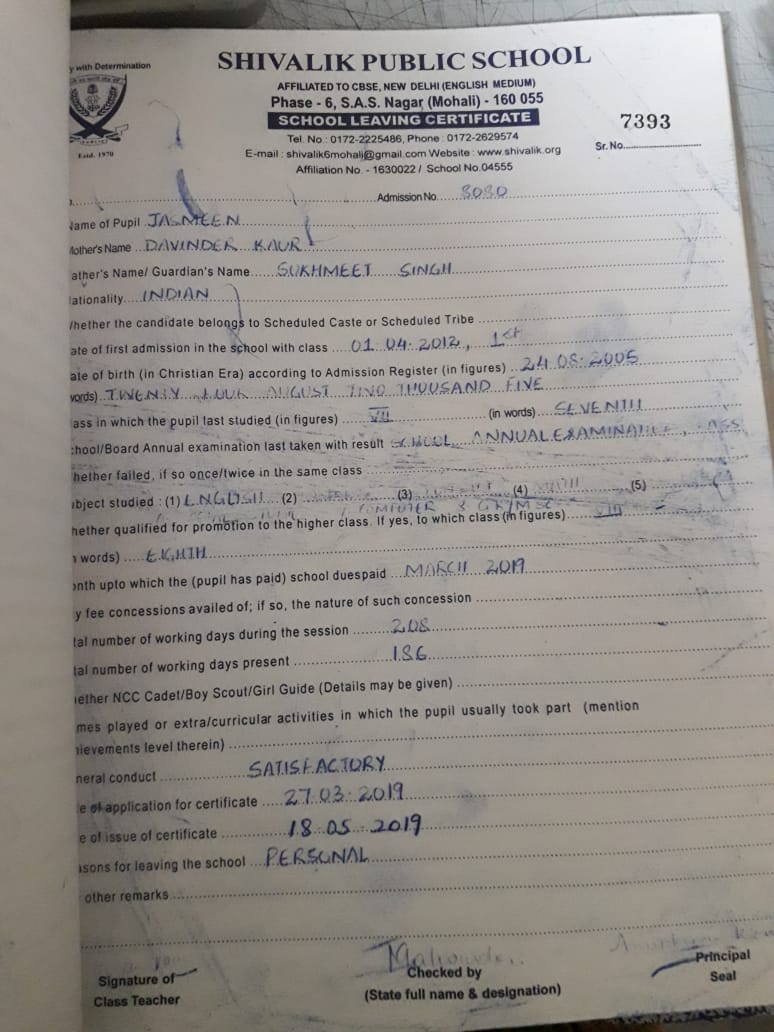 y with Determination
SHIVALIK PUBLIC SCHOOL
AFFILIATED TO CBSE, NEW DELHI (ENGLISH MEDIUM)
Phase - 6, S.A.S. Nagar (Mohali) - 160 055
SCHOOL LEAVING CERTIFICATE
7393
Tel. No. : 0172-2225486, Phone : 0172-2629574
Sr. No.
E-mail : shivalik6mohali@gmail.com Website : www.shivalik.org
Estd. 1970
Affiliation No. - 1630022 / School No.04555
Admission No. 8080
Name of Pupil JASMEEN
Mother's Name DAVINDER KAUR
ather's Name/ Guardian's Name SUKHMEET SINGH
lationality INDIAN
Whether the candidate belongs to Scheduled Caste or Scheduled Tribe
ate of first admission in the school with class 01.04.2012, 1st
ate of birth (in Christian Era) according to Admission Register (in figures) 24.08.2005
words) TWENTY FOUR AUGUST TWO THOUSAND FIVE
ass in which the pupil last studied (in figures) VII (in words) SEVENTH
chool/Board Annual examination last taken with result SCHOOL ANNUAL EXAMINATION,
hether failed, if so once/twice in the same class
bject studied : (1) ENGLISH (2) (3) (4) MATH (5)
COMPUTER &
hether qualified for promotion to the higher class. If yes, to which class (in figures)
words) EIGHTH
onth upto which the (pupil has paid) school duespaid MARCH 2019
y fee concessions availed of; if so, the nature of such concession
tal number of working days during the session 208
tal number of working days present 186
ether NCC Cadet/Boy Scout/Girl Guide (Details may be given)
mes played or extra/curricular activities in which the pupil usually took part (mention
hievements level therein)
neral conduct SATISFACTORY
e of application for certificate 27.03.2019
e of issue of certificate 18.05.2019
asons for leaving the school PERSONAL
other remarks
Signature of
Class Teacher
Checked by
(State full name & designation)
Principal
Seal